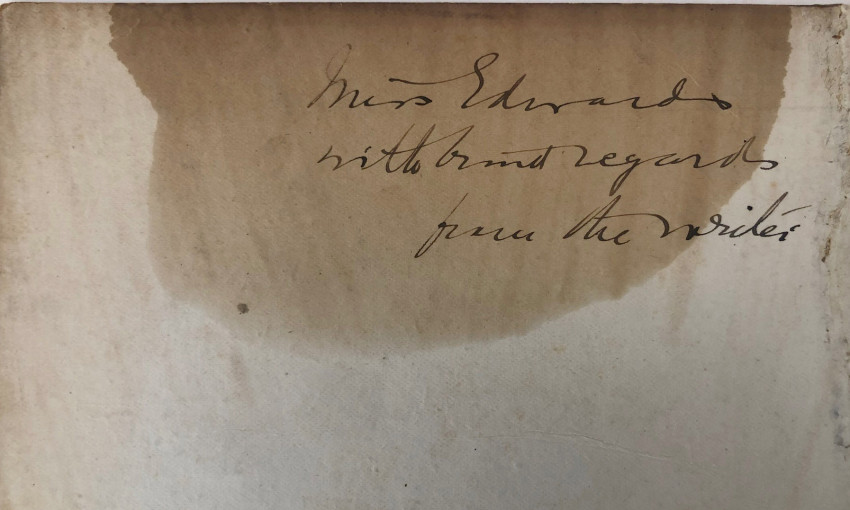 Miss Edwards
with kind regards
from the writer